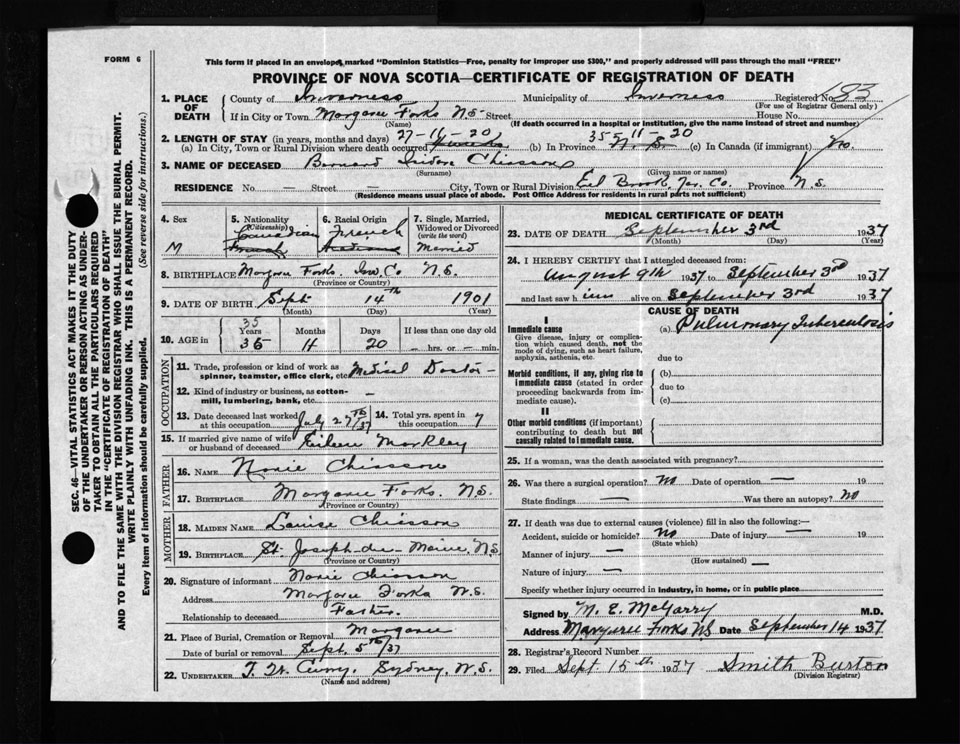 FORM 6
This form if placed in an envelope, marked "Dominion Statistics—Free, penalty for improper use $300," and properly addressed will pass through the mail "FREE"
PROVINCE OF NOVA SCOTIA—CERTIFICATE OF REGISTRATION OF DEATH
1. PLACE OF DEATH County of Inverness Municipality of Inverness Registered No. 183
(For use of Registrar General only)
If in City or Town Margaree Forks N.S. Street House No.
(Name) (If death occurred in a hospital or institution, give the name instead of street and number)
2. LENGTH OF STAY (in years, months and days) 27-11-20 35-11-20
(a) In City, Town or Rural Division where death occurred (b) In Province N.S. (c) In Canada (if immigrant) No.
3. NAME OF DECEASED Bernard Isidore Chisson
(Surname) (Given name or names)
RESIDENCE No. — Street — City, Town or Rural Division Eel Brook Yar. Co. Province N.S.
(Residence means usual place of abode. Post Office Address for residents in rural parts not sufficient)
4. Sex M
5. Nationality (Citizenship) Canadian
6. Racial Origin French
7. Single, Married, Widowed or Divorced (write the word) Married
8. BIRTHPLACE Margaree Forks. Inv. Co N.S.
(Province or Country)
9. DATE OF BIRTH Sept 14th 1901
(Month) (Day) (Year)
35
10. AGE in Years 36 Months 11 Days 20 If less than one day old — hrs. or — min.
OCCUPATION
11. Trade, profession or kind of work as spinner, teamster, office clerk, etc. Medical Doctor —
12. Kind of industry or business, as cotton-mill, lumbering, bank, etc. —
13. Date deceased last worked at this occupation July 27th/37 14. Total yrs. spent in 7
15. If married give name of wife or husband of deceased Eileen MacKley
FATHER
16. NAME Norie Chisson
17. BIRTHPLACE Margaree Forks. N.S.
(Province or Country)
MOTHER
18. MAIDEN NAME Louise Chisson
19. BIRTHPLACE St. Joseph-du-Moine, N.S.
(Province or Country)
20. Signature of informant Norie Chisson
Address Margaree Forks N.S.
Relationship to deceased Father.
21. Place of Burial, Cremation or Removal Margaree
Date of burial or removal Sept. 5th/37
22. UNDERTAKER Sydney, N.S.
(Name and address)
MEDICAL CERTIFICATE OF DEATH
23. DATE OF DEATH September 3rd 1937
(Month) (Day) (Year)
24. I HEREBY CERTIFY that I attended deceased from:
August 9th 1937 to September 3rd 1937
and last saw him alive on September 3rd 1937
CAUSE OF DEATH
I
Immediate cause (a) Pulmonary Tuberculosis
Give disease, injury or complication which caused death, not the mode of dying, such as heart failure, asphyxia, asthenia, etc.
due to
Morbid conditions, if any, giving rise to immediate cause (stated in order proceeding backwards from immediate cause).
(b)
due to
(c)
II
Other morbid conditions (if important) contributing to death but not causally related to immediate cause.
25. If a woman, was the death associated with pregnancy?
26. Was there a surgical operation? No Date of operation — 19
State findings — Was there an autopsy? No
27. If death was due to external causes (violence) fill in also the following:—
Accident, suicide or homicide? No Date of injury — 19
(State which)
Manner of injury — (How sustained) —
Nature of injury —
Specify whether injury occurred in industry, in home, or in public place
Signed by M. E. McGarry M.D.
Address Margaree Forks NS Date September 14 1937
28. Registrar's Record Number
29. Filed Sept 15th 1937 Smith Burton
(Division Registrar)
SEC. 46—VITAL STATISTICS ACT MAKES IT THE DUTY
OF THE UNDERTAKER OR PERSON ACTING AS UNDER-
TAKER TO OBTAIN ALL THE PARTICULARS REQUIRED
IN THE "CERTIFICATE OF REGISTRATION OF DEATH"
AND TO FILE THE SAME WITH THE DIVISION REGISTRAR WHO SHALL ISSUE THE BURIAL PERMIT.
WRITE PLAINLY WITH UNFADING INK. THIS IS A PERMANENT RECORD.
Every item of information should be carefully supplied. (See reverse side for instructions.)